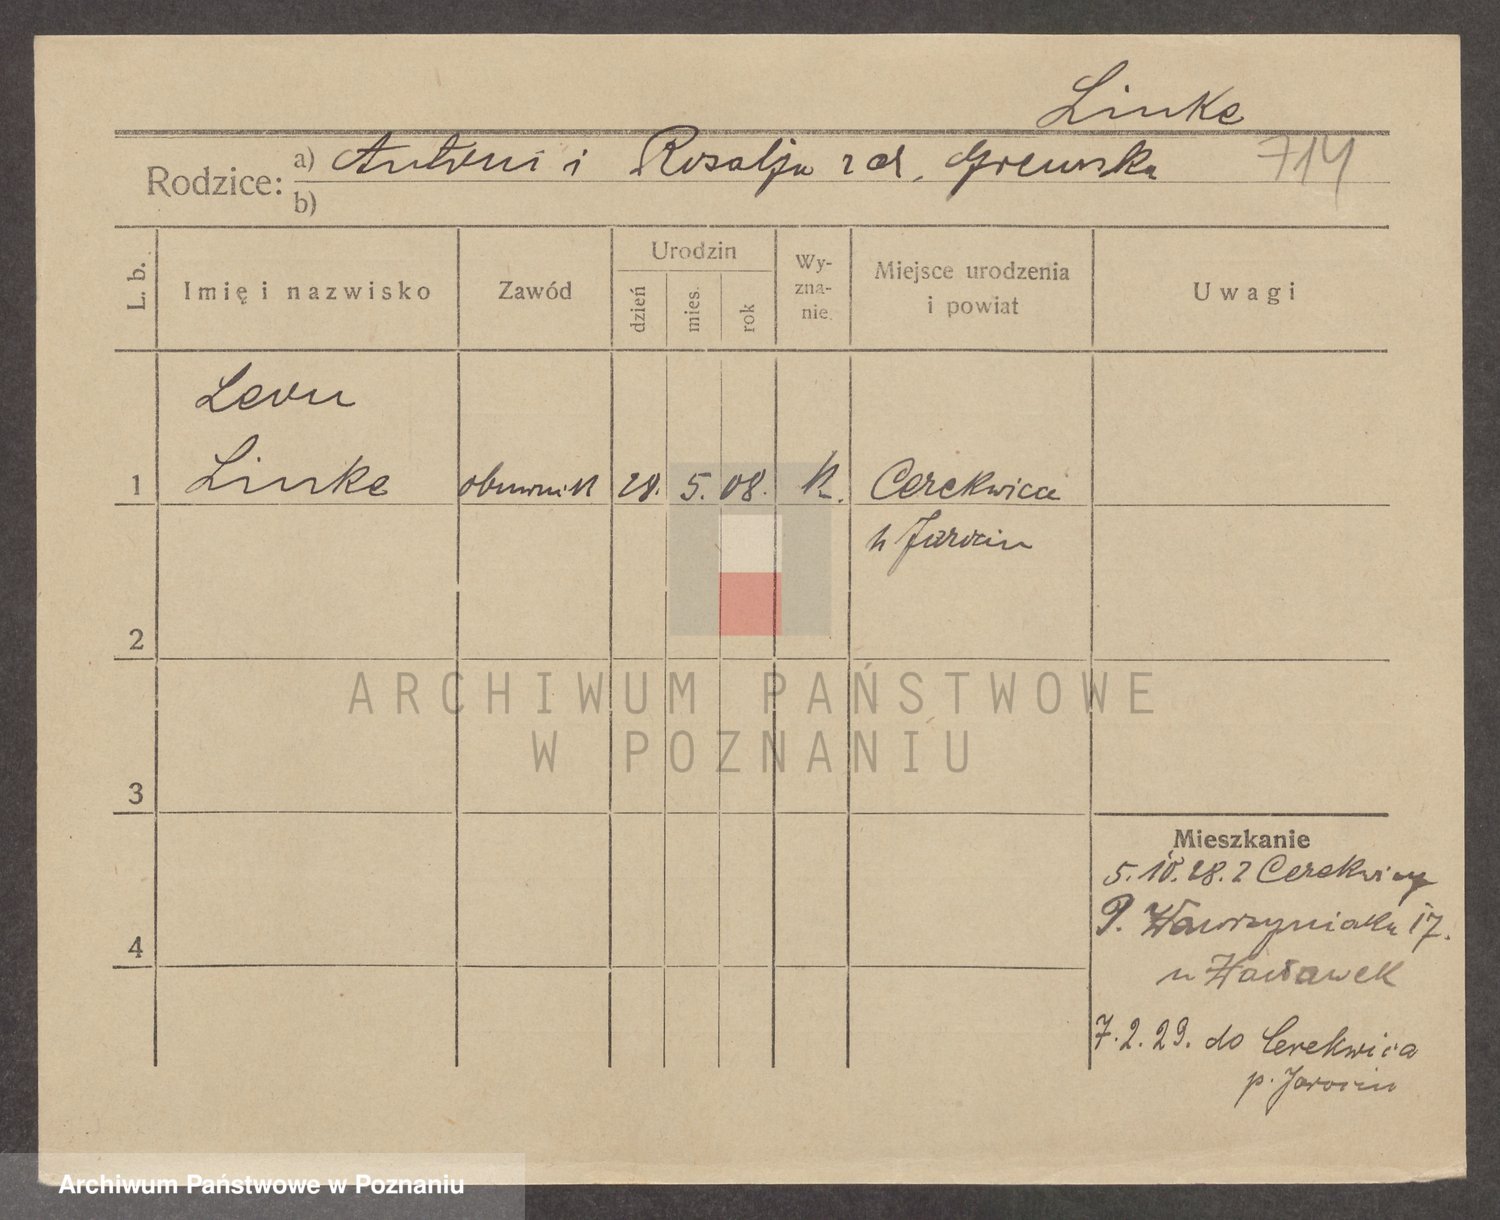 Linke
Rodzice: a) Antoni i Rosalja z d. 714
b)
L. b. Imię i nazwisko Zawód Urodzin dzień mies. rok Wyznanie Miejsce urodzenia i powiat Uwagi
Leon
1 Linke obuwnik 28. 5. 08. k. Cerekwica
p Jarocin
2
ARCHIWUM PAŃSTWOWE
W POZNANIU
3
Mieszkanie
5.10.28. z Cerekwicy
P. Wawrzyniaka 17.
4
u Wacławek
7.2.29. do Cerekwica
p. Jarocin
Archiwum Państwowe w Poznaniu